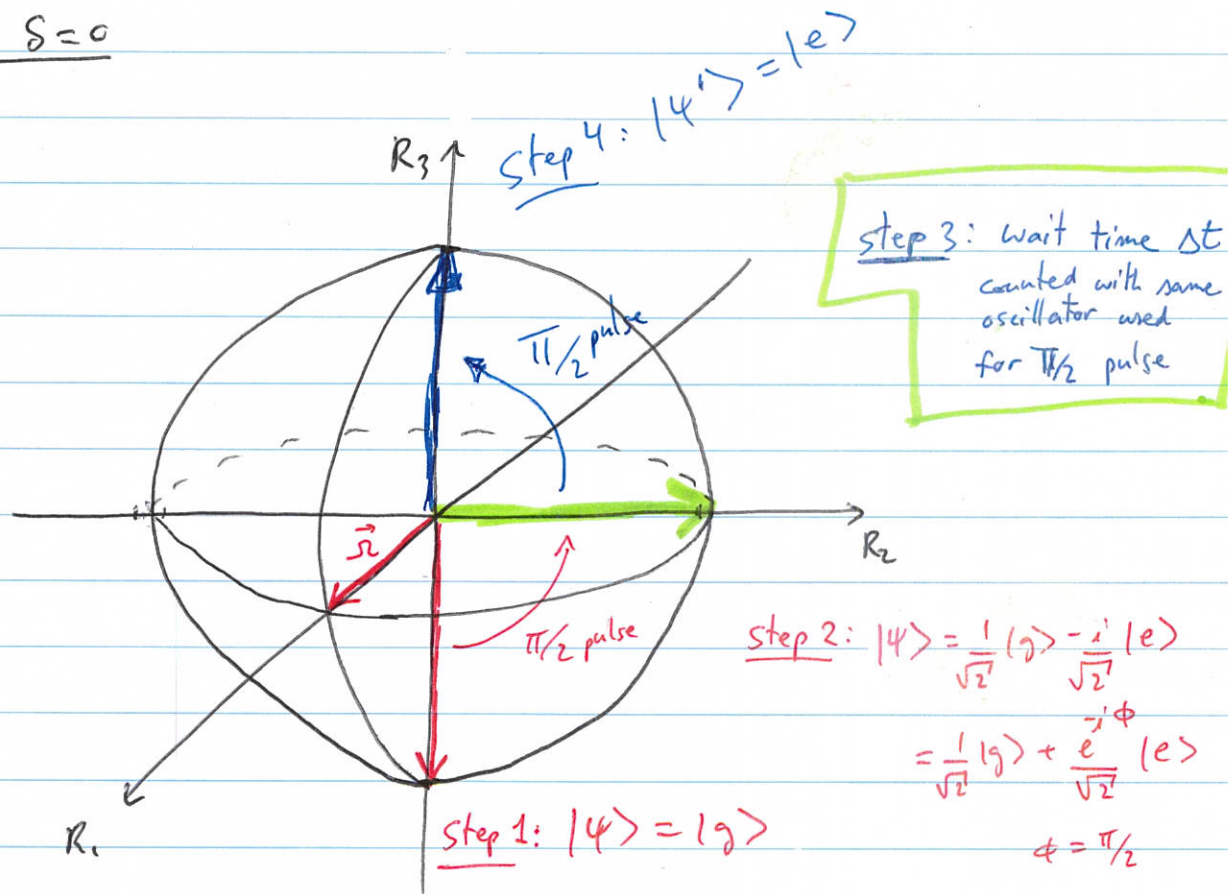 δ=0
step 4: |ψ'> = |e>
R₃
step 3: wait time Δt
counted with same
oscillator used
for π/2 pulse
π/2 pulse
Ω⃗
R₂
π/2 pulse
step 2: |ψ> = 1/√2 |g> - i/√2 |e>
= 1/√2 |g> + e^{-iϕ}/√2 |e>
ϕ = π/2
R₁
step 1: |ψ> = |g>